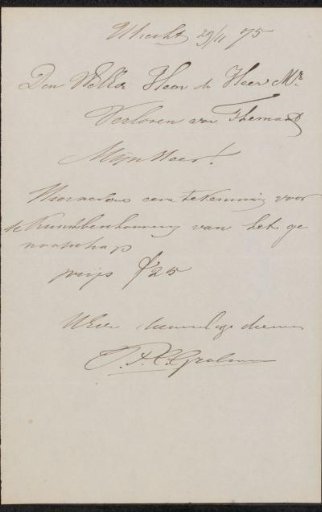 Utrecht 29/11 75
Den WelEd. Heer de Heer Mr.
Verloren van Themaat
Mijn Heer!
eene tekening voor
de Kunstbeschouwing van het ge
nootschap
prijs ƒ 25
UEd dienaar